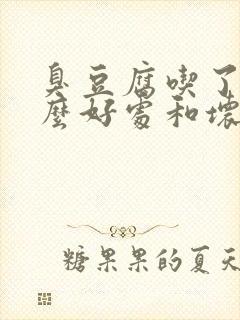 臭豆腐喫了
麼好處和壞
糖果果的夏天